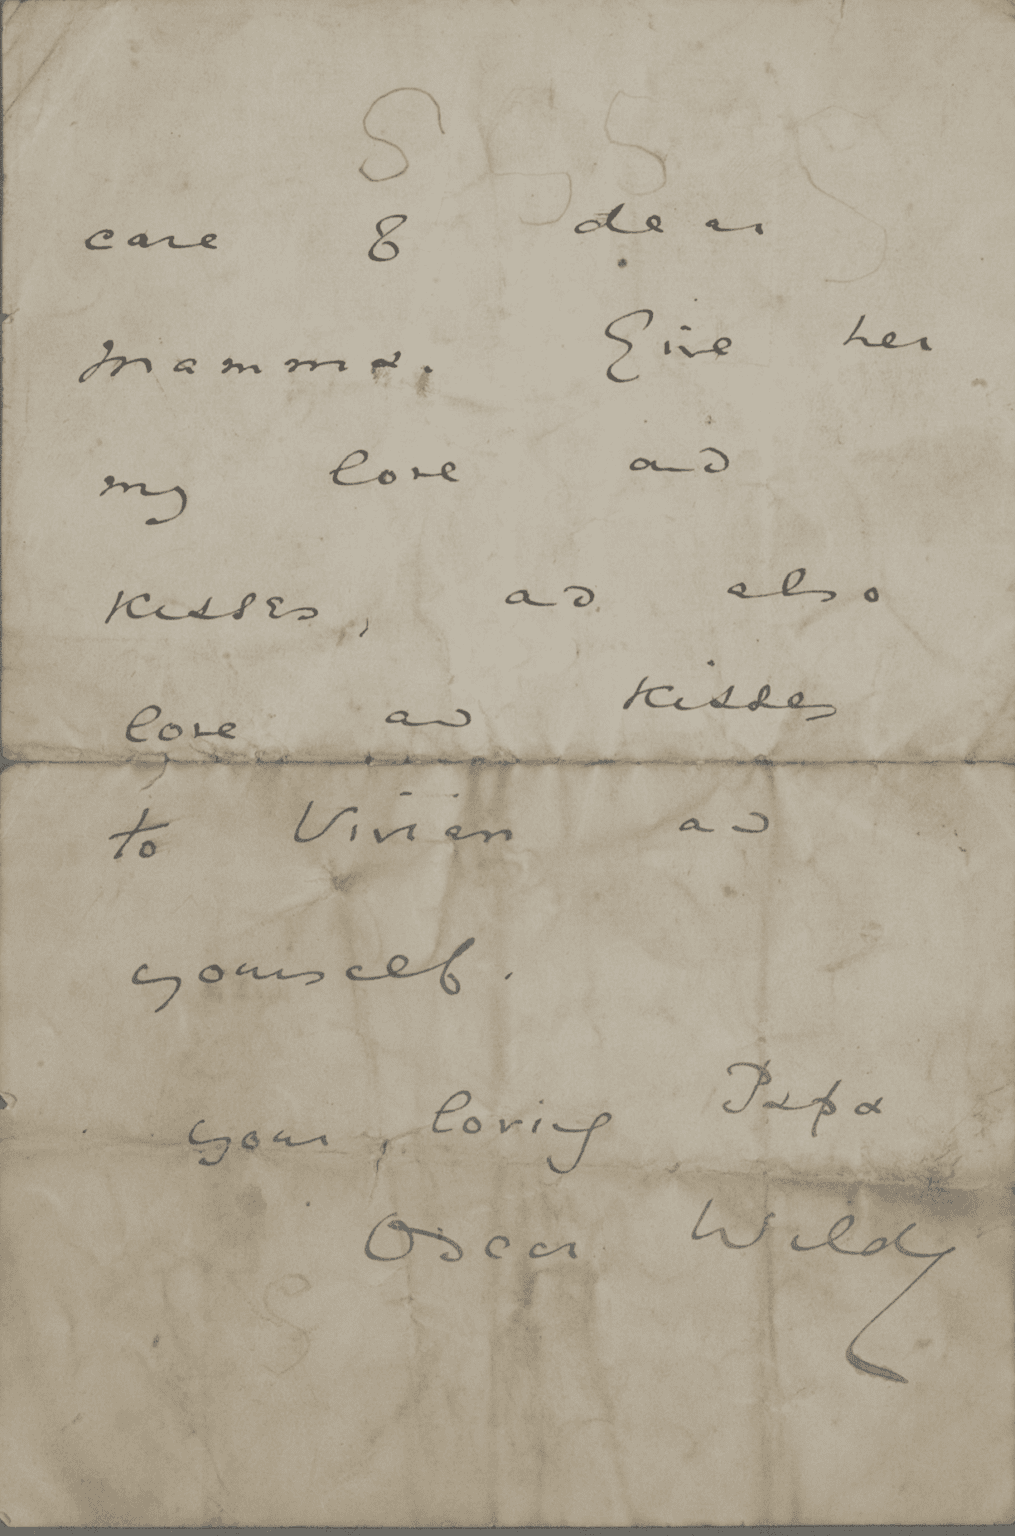 care of dear
Mamma. Give her
my love and
kisses, and also
love and kisses
to Vivian and
yourself.
your loving Papa
Oscar Wilde